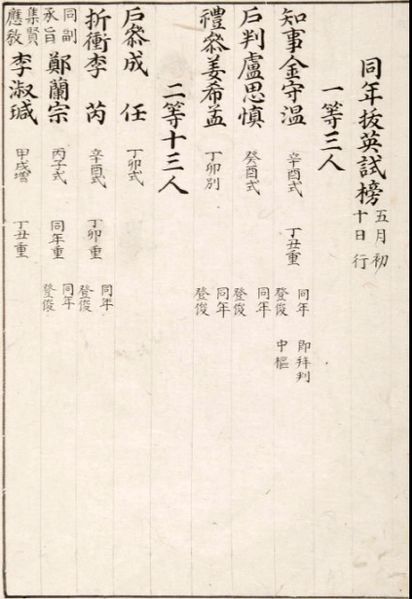 同年拔英試榜 五月初十日行
一等三人
知事金守溫 辛酉式 丁丑重 同年登俊 即拜判中樞
戶判盧思愼 癸酉式 同年登俊
禮參姜希孟 丁卯別 同年登俊
二等十三人
戶參成任 丁卯式
折衝李芮 辛酉式 丁卯重 同年登俊
同副承旨鄭蘭宗 丙子式 同年重 同年登俊
集賢應敎李淑瑊 甲戌增 丁丑重